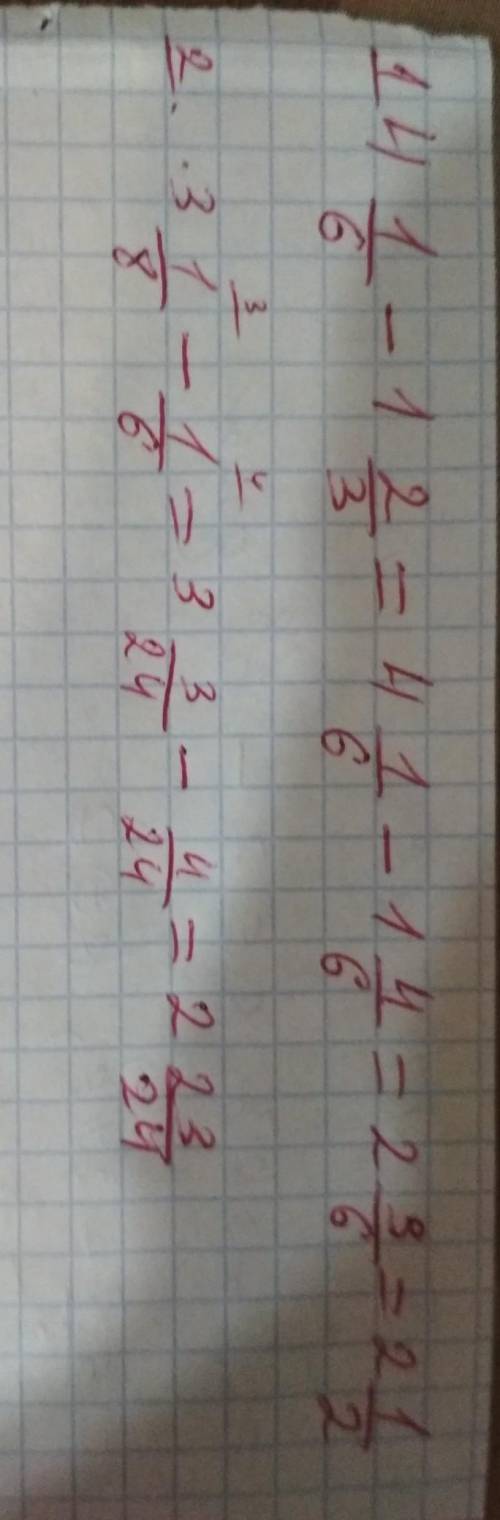 1 4 1/6 - 1 2/3 = 4 1/6 - 1 4/6 = 2 3/6 = 2 1/2
2. . 3 1/8 ³ - 1/6 ⁴ = 3 3/24 - 4/24 = 2 23/24